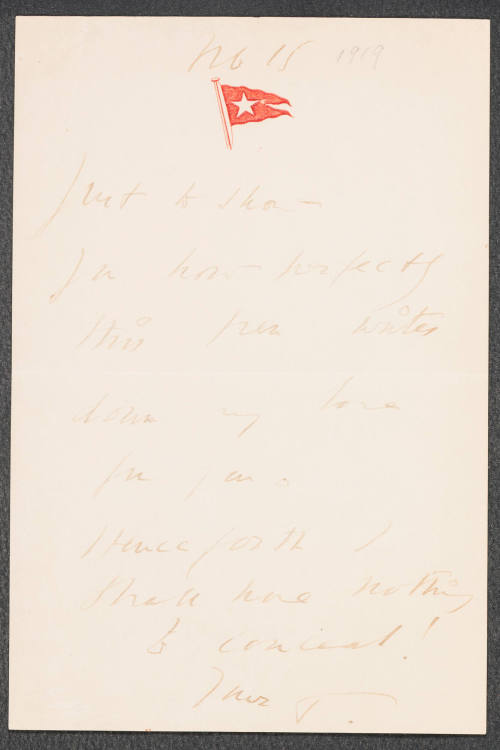 Feb 15 1919
Just to show
you how perfectly
this pen writes
down my love
for you.
Henceforth I
shall have nothing
to conceal!
Yours T.